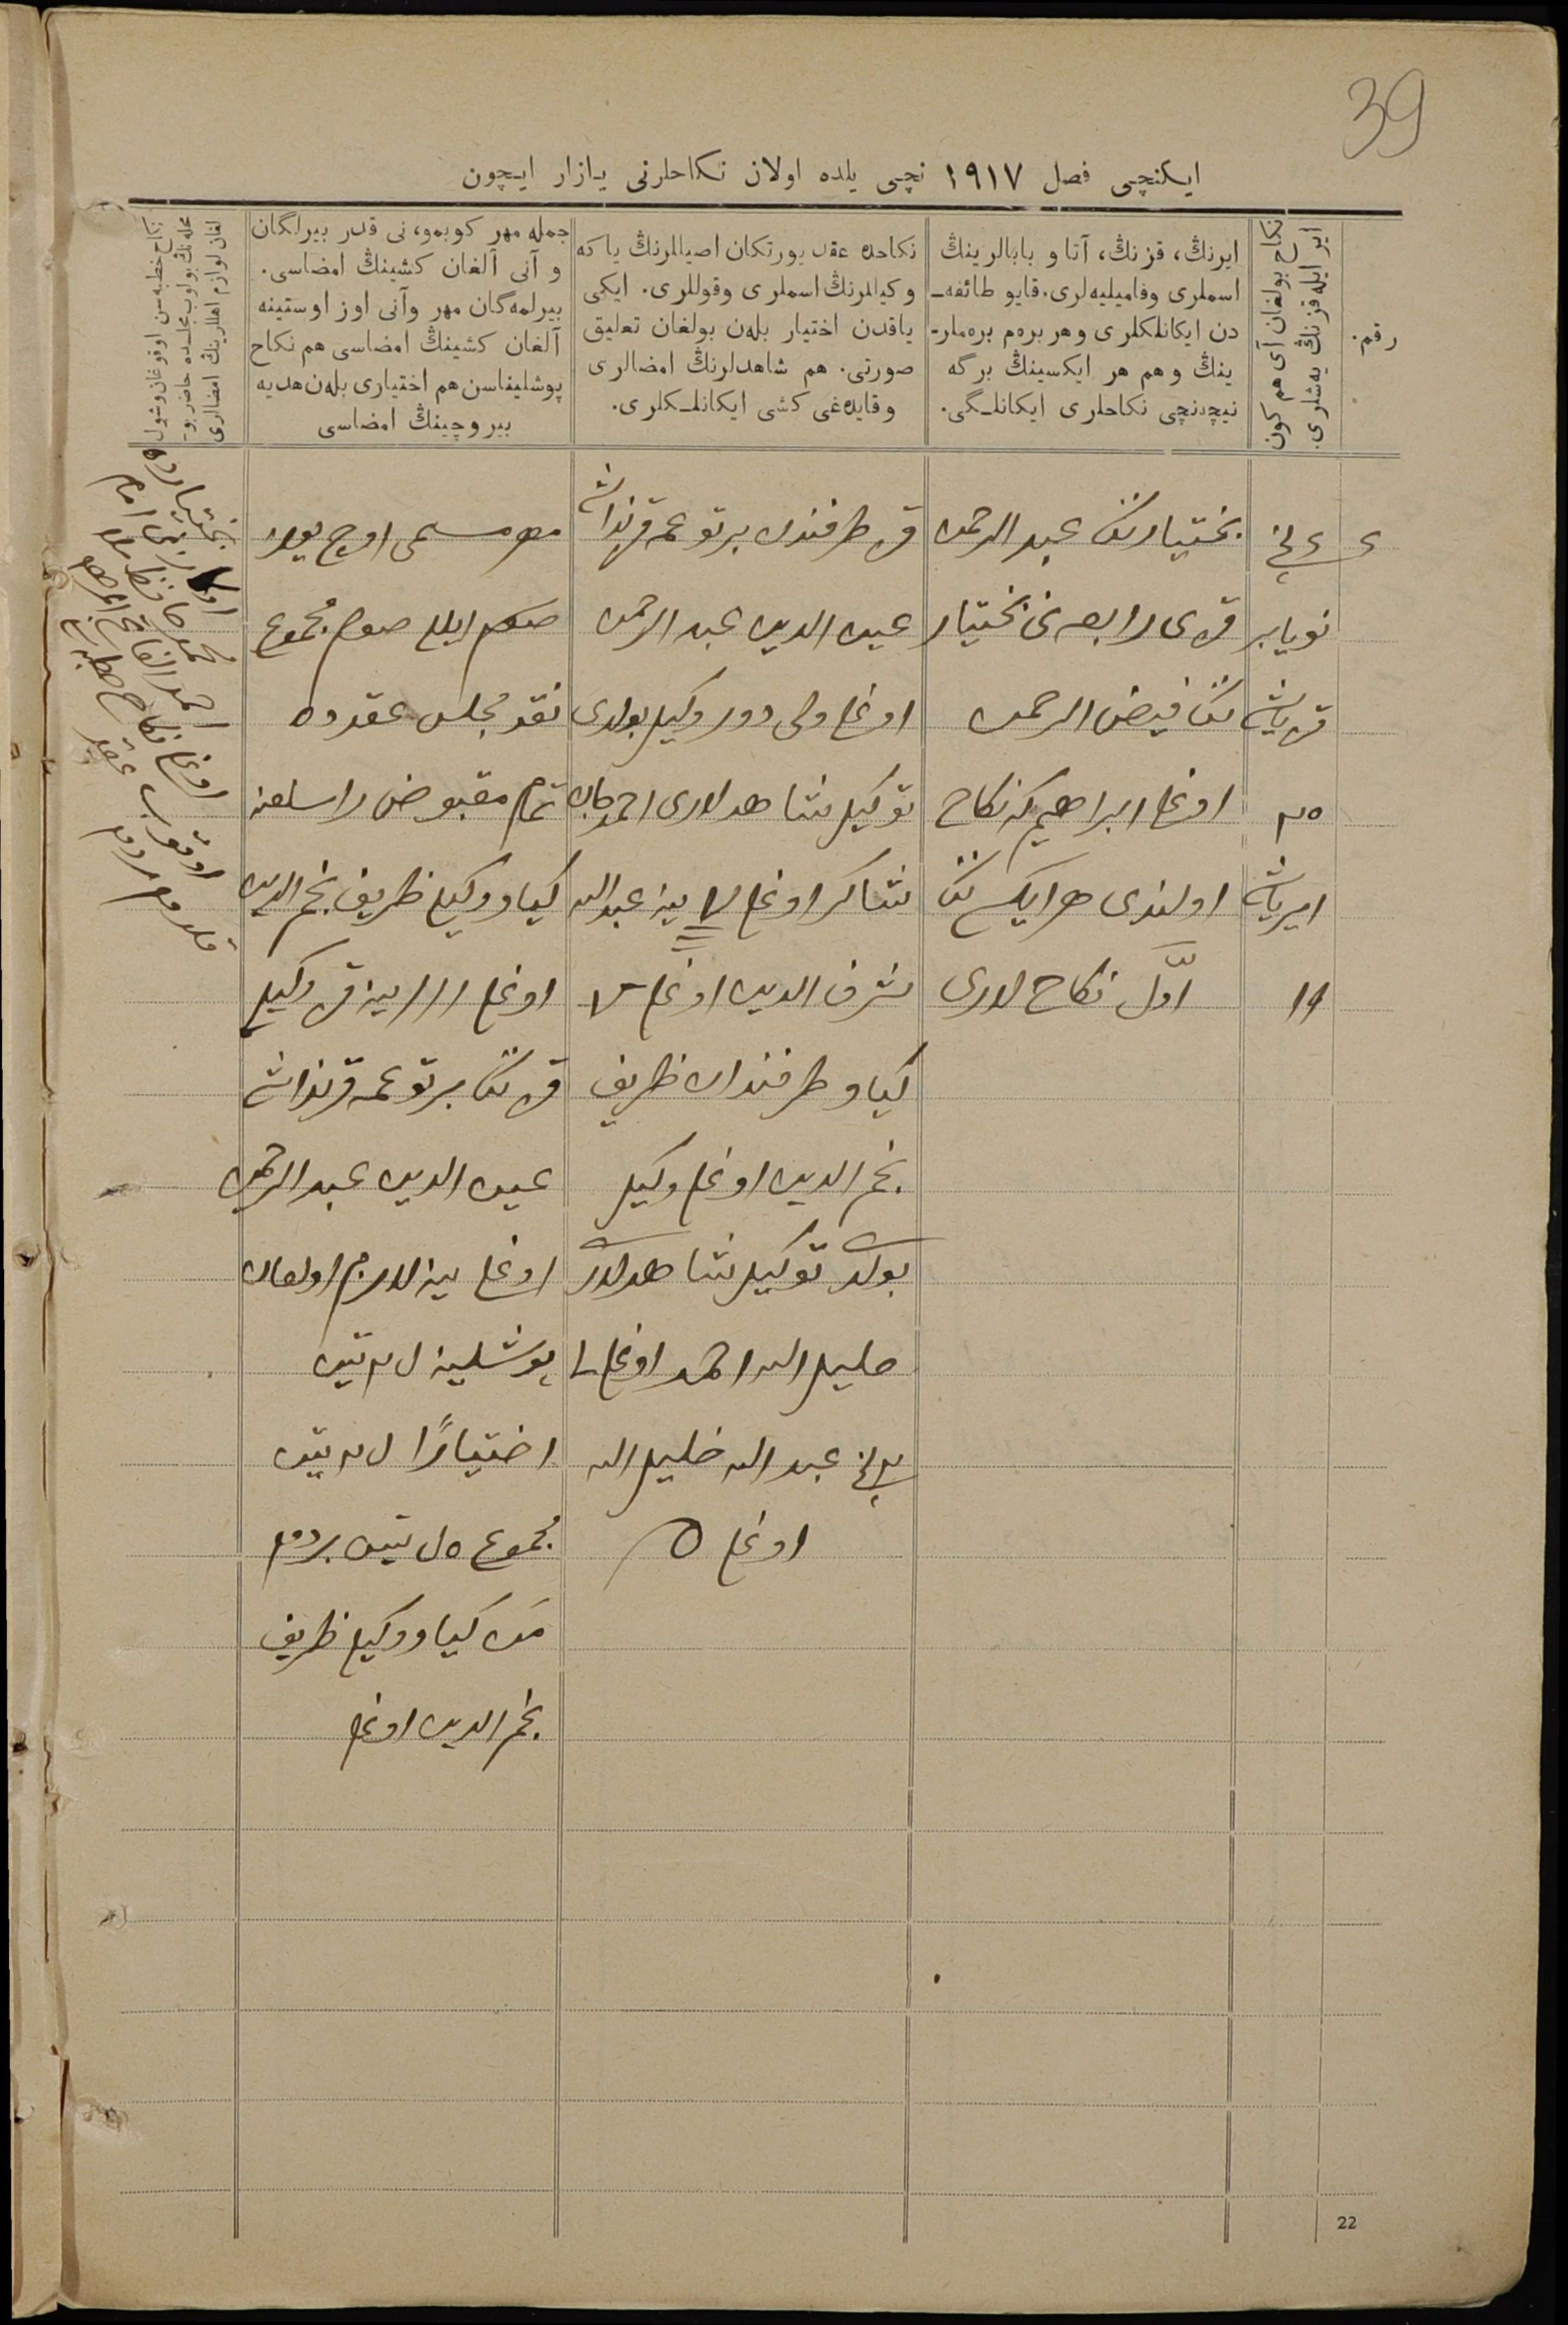 39
ایکنچی فصل ۱۹۱۷ نچی یلده اولان نکاحلرنی یازار ایچون
رقم.
نکاح بولغان آی هم کون
ایر ایله قزنڭ یه‌شلری.
ایرنڭ، قزنڭ، آتا و بابالرینڭ
اسملری وفامیلیه‌لری. قایو طائفه‌ـ
دن ایکانلکلری وهر بره‌م بره‌ملرـ
ینڭ وهم هر ایکسینڭ برگه
نیچه‌نچی نکاحلری ایکانلـگی.
نکاحده عقد یورتکان اصیللرنڭ یا که
وکیللرنڭ اسملری وقوللری. ایکی
یاقدن اختیار بله‌ن بولغان تعلیق
صورتی. هم شاهدلرنڭ امضالری
وقایده‌غی کشی ایکانلـکلری.
جمله مهر کوبمو، نی قدر بیرلگان
و آنی آلغان کشینڭ امضاسی.
بیرلمه‌گان مهر وآنی اوز اوستینه
آلغان کشینڭ امضاسی هم نکاح
پوشلیناسن هم اختیاری بله‌ن هدیه
بیروچینڭ امضاسی
نکاح خطبه‌سن اوقوغان وشول
محله‌نڭ بولوب مجلسده حاضر بو-
لغان لوازم اهللرینڭ امضالری
۲
۲ نچی
نویابر
قز یاشی
۲۵
ایر یاشی
۱۹
بختیارنڭ عبد الرحمن
قزی رابعه نی بختیار
نڭ فیض الرحمن
اوغلی ابراهیم که نکاح
اولندی هر ایکسی نڭ
اوّل نکاح لاری
قز طرفندن بر توغمه قرنداشی
عین الدین عبد الرحمن
اوغلی ولی دور وکیل بولدی
توکیل شاهدلاری احمدجان
شاکر اوغلی ینه عبد الله
شرف الدین اوغلی
کیاو طرفندان ظریف
نجم الدین اوغلی وکیل
بولدی توکیل شاهدلاری
خلیل الله احمد اوغلی
نچی عبد الله خلیل الله
اوغلی
مهر مسمی اوچ یوز
صوم ایللی صوم مجموع
نقد مجلس عقد ده
تمام مقبوض
کیاو وکیلی ظریف نجم الدین
اوغلی ینه قز وکیلی
قز نڭ بر توغمه قرنداشی
عین الدین عبد الرحمن
اوغلی
پوشلینه تین
اختیارًا تین
مجموع تین بردم
من کیاو وکیلی ظریف
نجم الدین اوغلی
بختیارده
امام
احمد
اوغلی نکاح خطبه سی
اوقوب عقد
قلدم
22